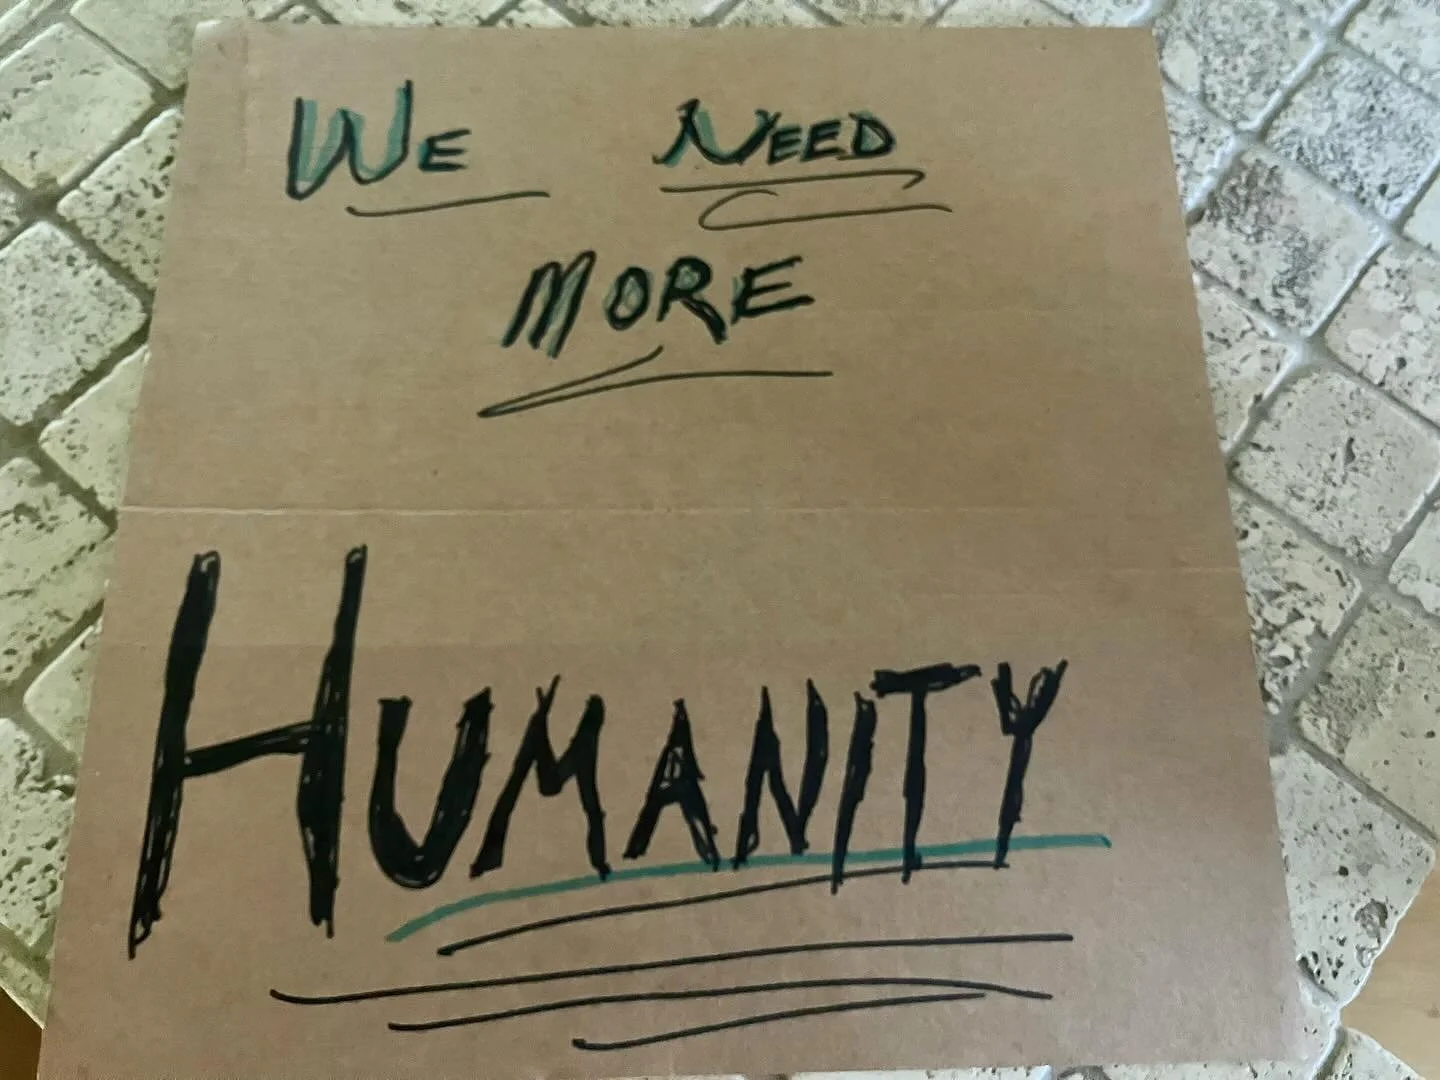 WE NEED
MORE
HUMANITY